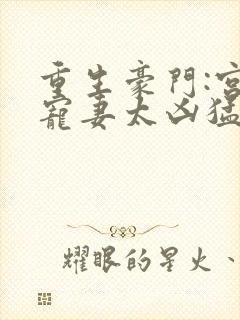 重生豪門:宮
寵妻太凶猛
耀眼的星火、